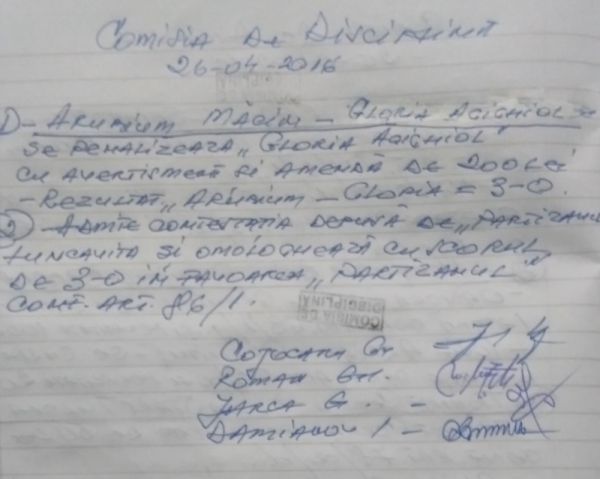 COMISIA DE DISCIPLINĂ
26-04-2016
1)- ARUBIUM MĂCIN - GLORIA AGIGHIOL =
SE PENALIZEAZĂ „GLORIA AGIGHIOL"
CU AVERTISMENT SI AMENDĂ DE 200 LEI
- REZULTAT „ARUBIUM - GLORIA = 3-0.
2)- ADMITE CONTESTATIA DEPUSĂ DE „PARTIZANUL
LUNCAVITA SI OMOLOGHEAZĂ CU SCORUL
DE 3-0 IN FAVOAREA „PARTIZANUL"
CONF. ART. 86/1.
COMISIA DE
DISCIPLINĂ
COJOCARU GH
ROMAN GH.
JARCA G. -
DAMIANOV I -